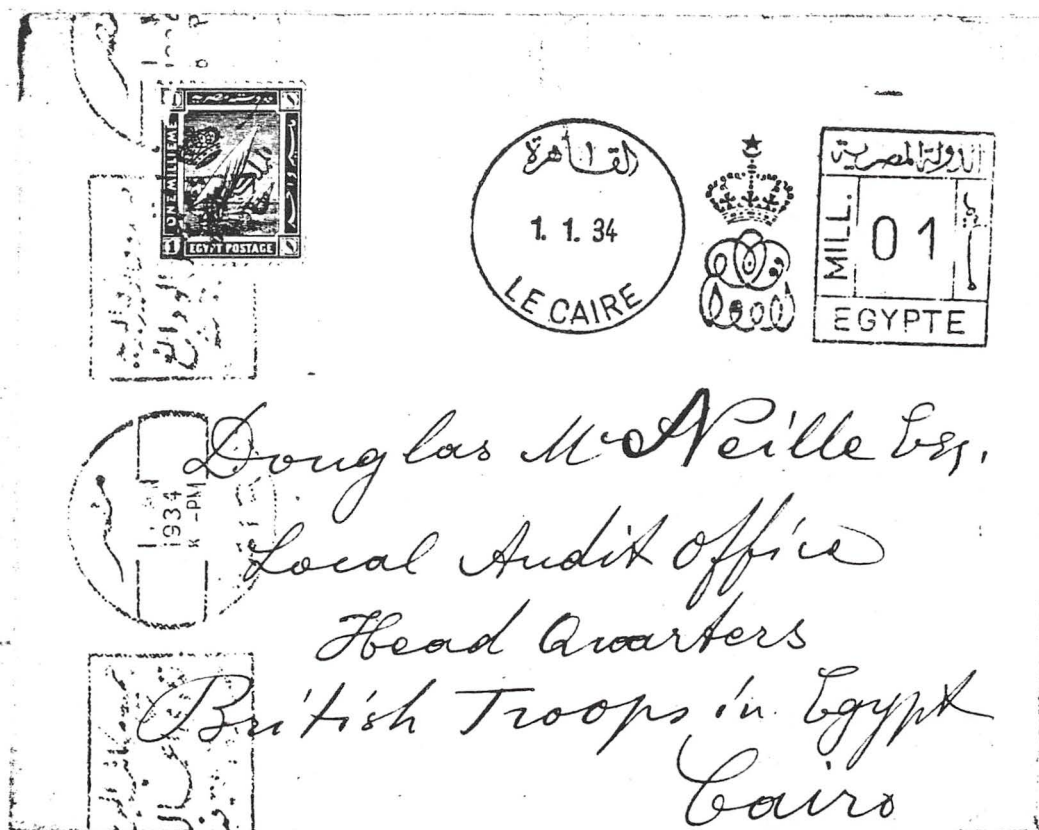 ONE MILLIEME
EGYPT POSTAGE
1
القاهرة
1. 1. 34
LE CAIRE
الدولة المصرية
MILL.
01
EGYPTE
1934
-PM
Douglas McNeille Esq.
Local Audit Office
Head Quarters
British Troops in Egypt
Cairo